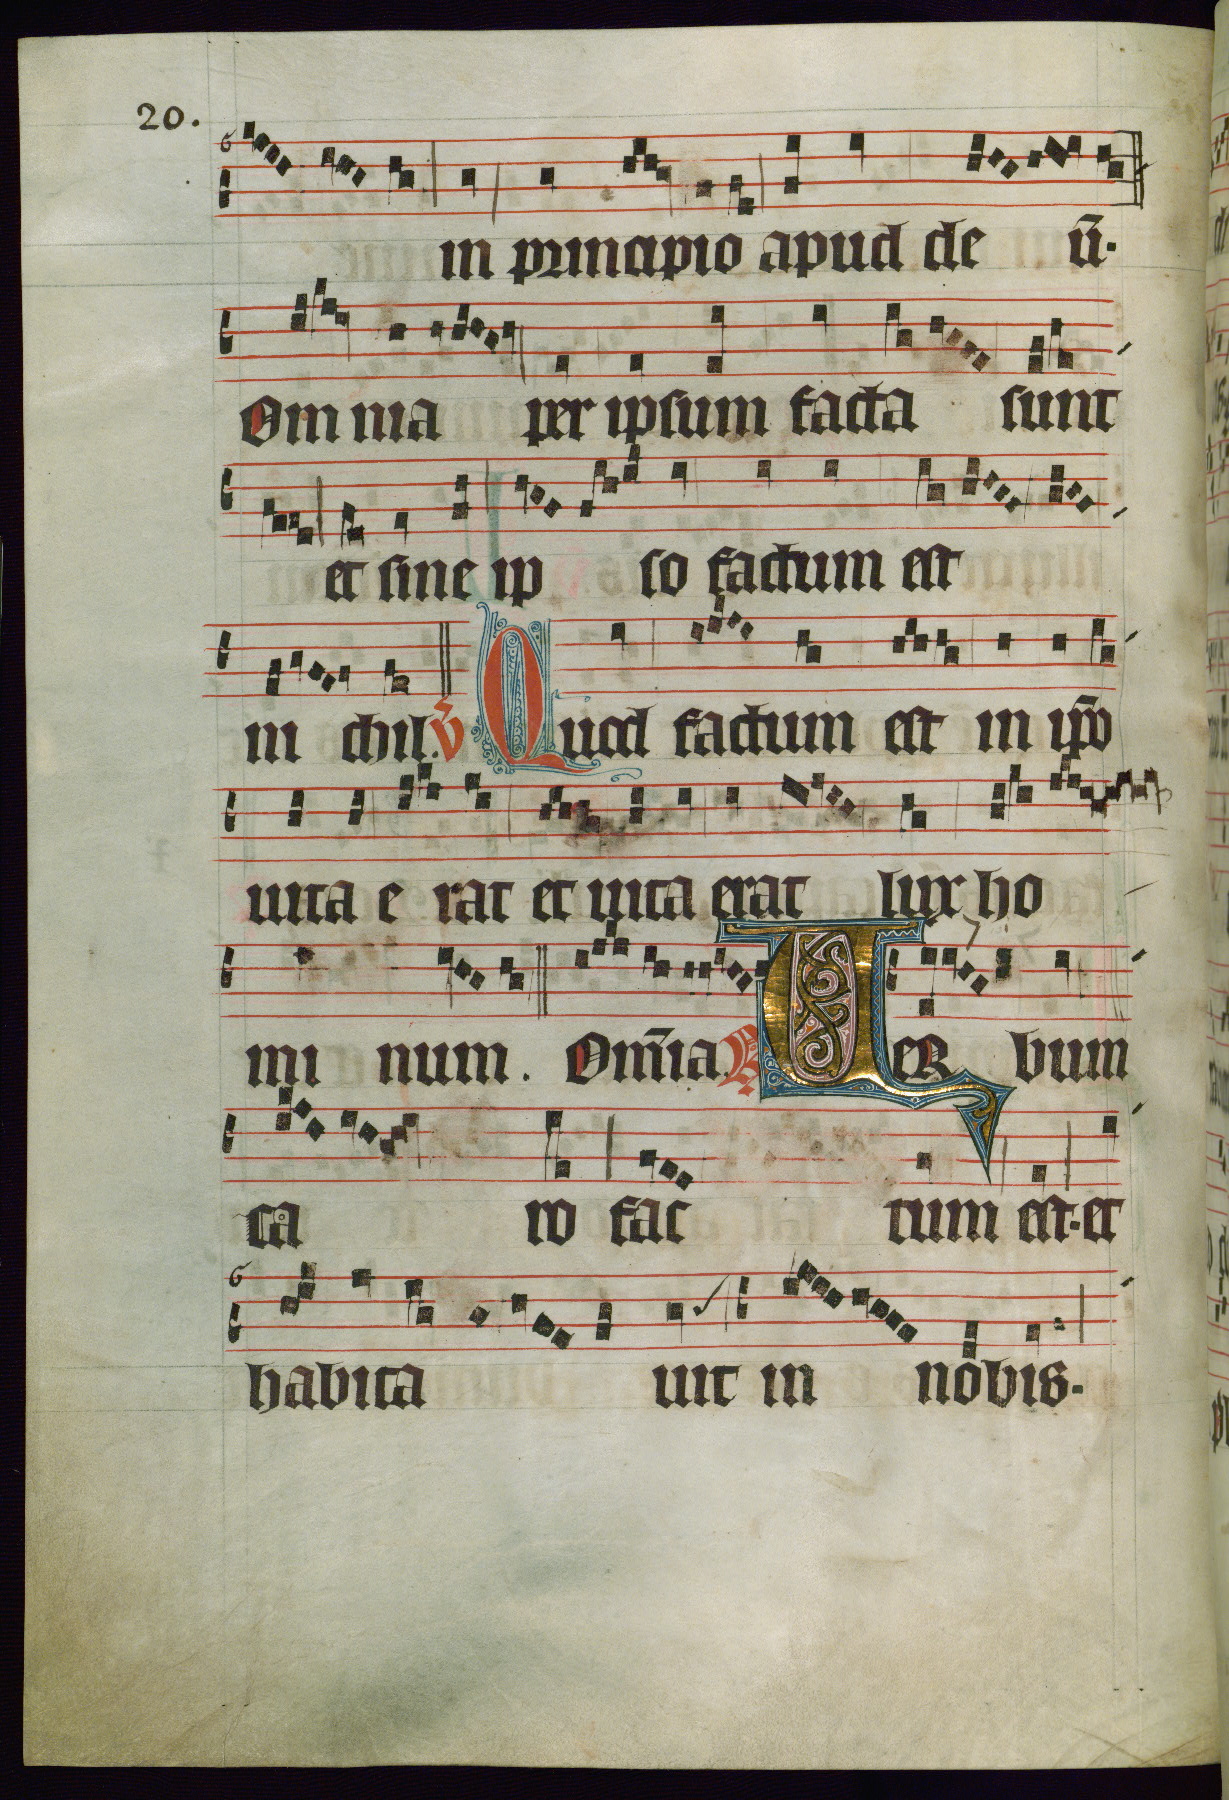 20.
in principio apud de ū.
Om nia per ipsum facta sunt
et sine ip so factum est
ni chil. v̄ Quod factum est in ip̄o
uita e rat et uita erat lux ho
mi num. Om̄ia. R Uer bum
ca ro fac tum est. et
habita uit in nobis.